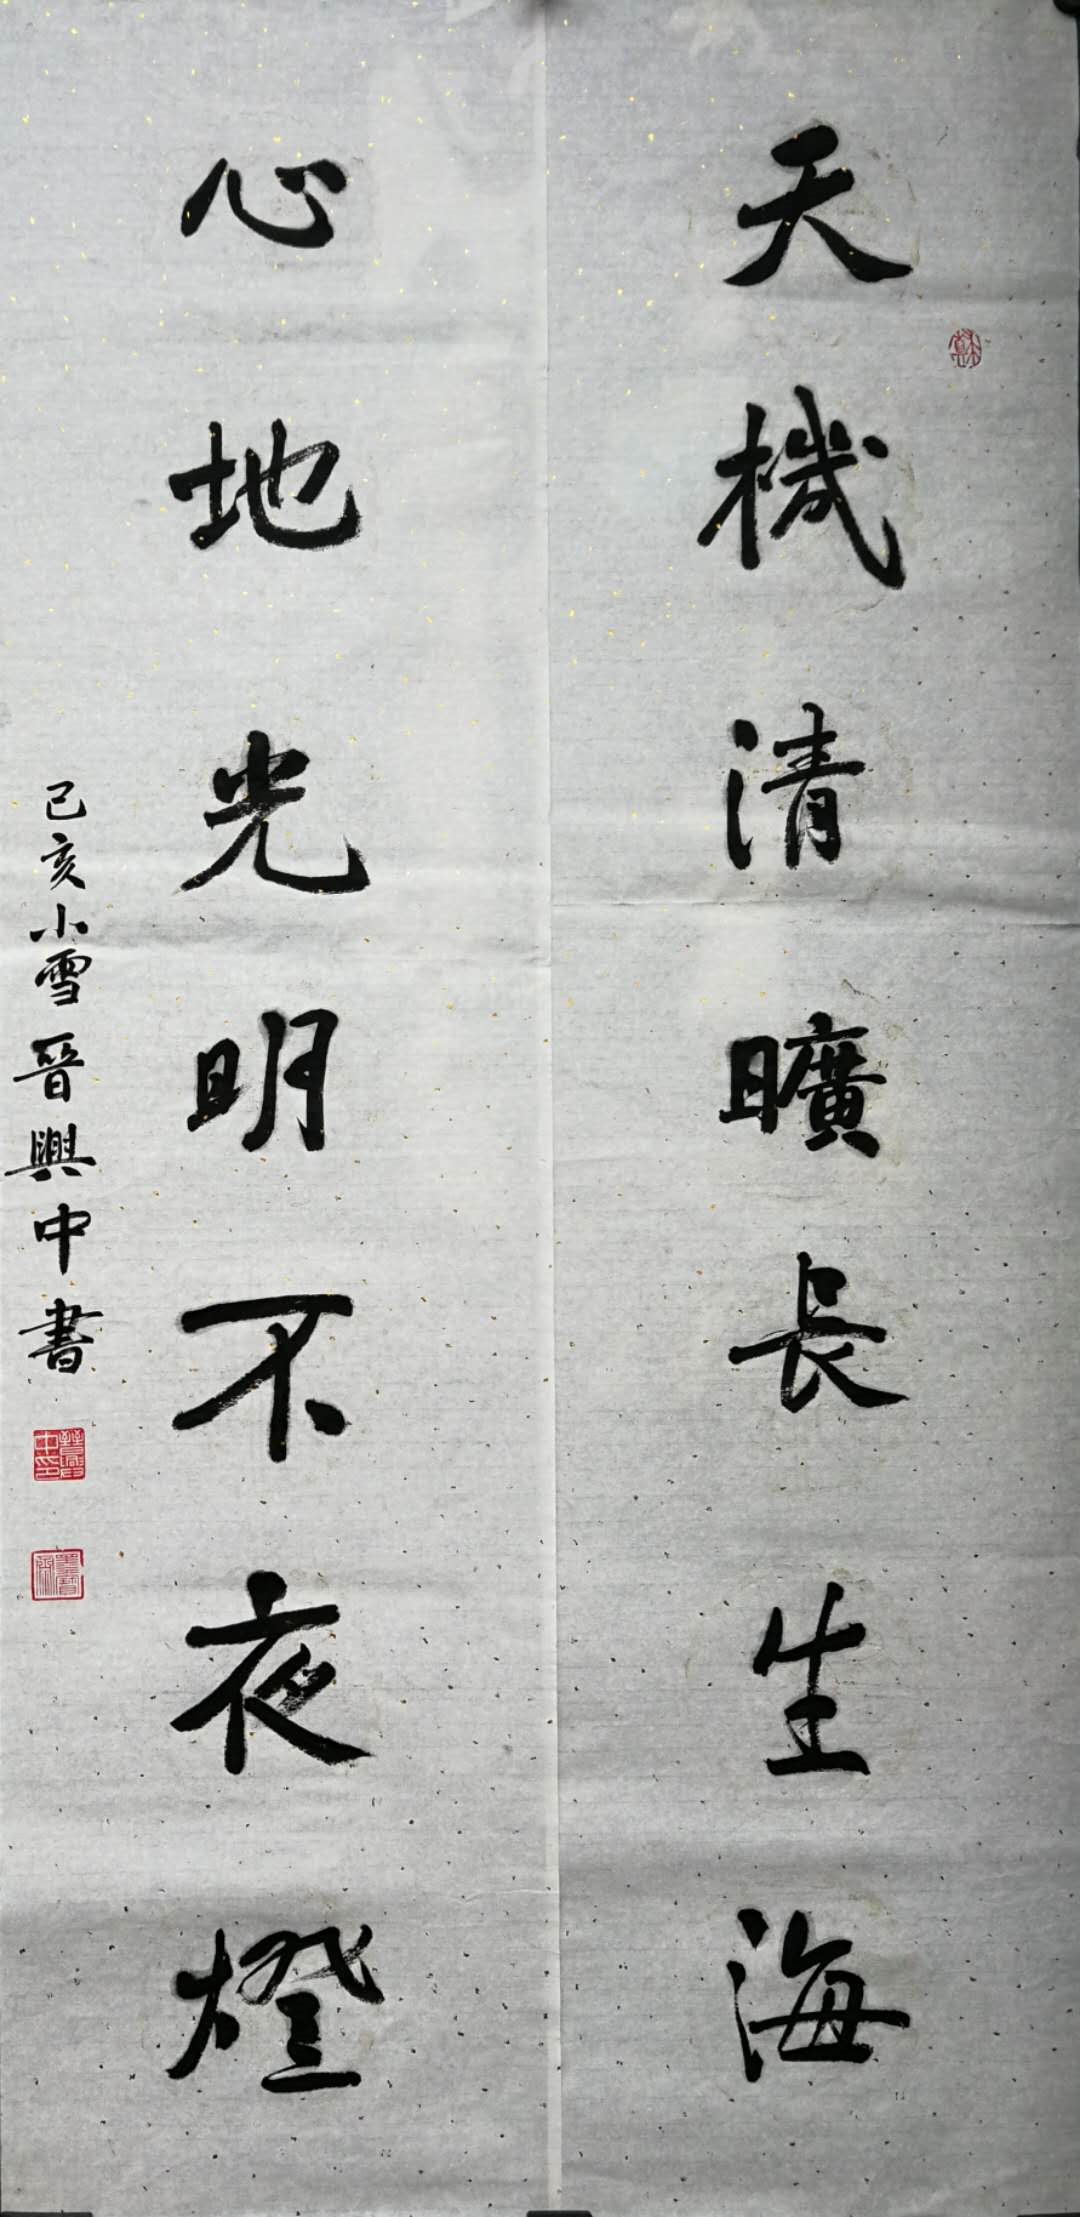 天機清曠長生海
心地光明不夜燈
己亥小雪晉興中書